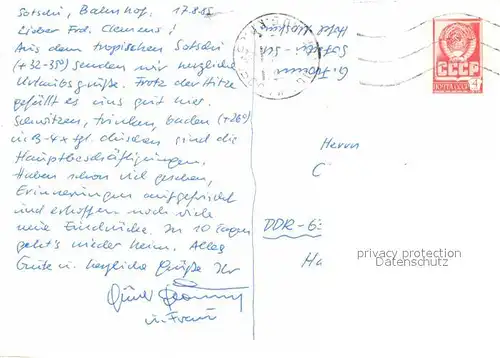 Sotschi, Bahnhof. 17.8.85
Lieber Frd. Clemens!
Aus dem tropischen Sotschi
(+32-35°) senden wir herzliche
Urlaubsgrüße. Trotz der Hitze
gefällt es uns gut hier.
Schwitzen, trinken, baden (+26°)
u. 3-4x tgl. duschen sind die
Hauptbeschäftigungen.
Haben schon viel gesehen,
Erinnerungen aufgefrischt
und erhoffen noch viele
neue Eindrücke. In 10 Tagen
geht's wieder heim. Alles
Gute u. herzliche Grüße Ihr
u. Frau
G.
Sotschi
Hotel Moskau
СССР
ПОЧТА
4
Herrn
C
DDR-6
Ha
privacy protection
Datenschutz